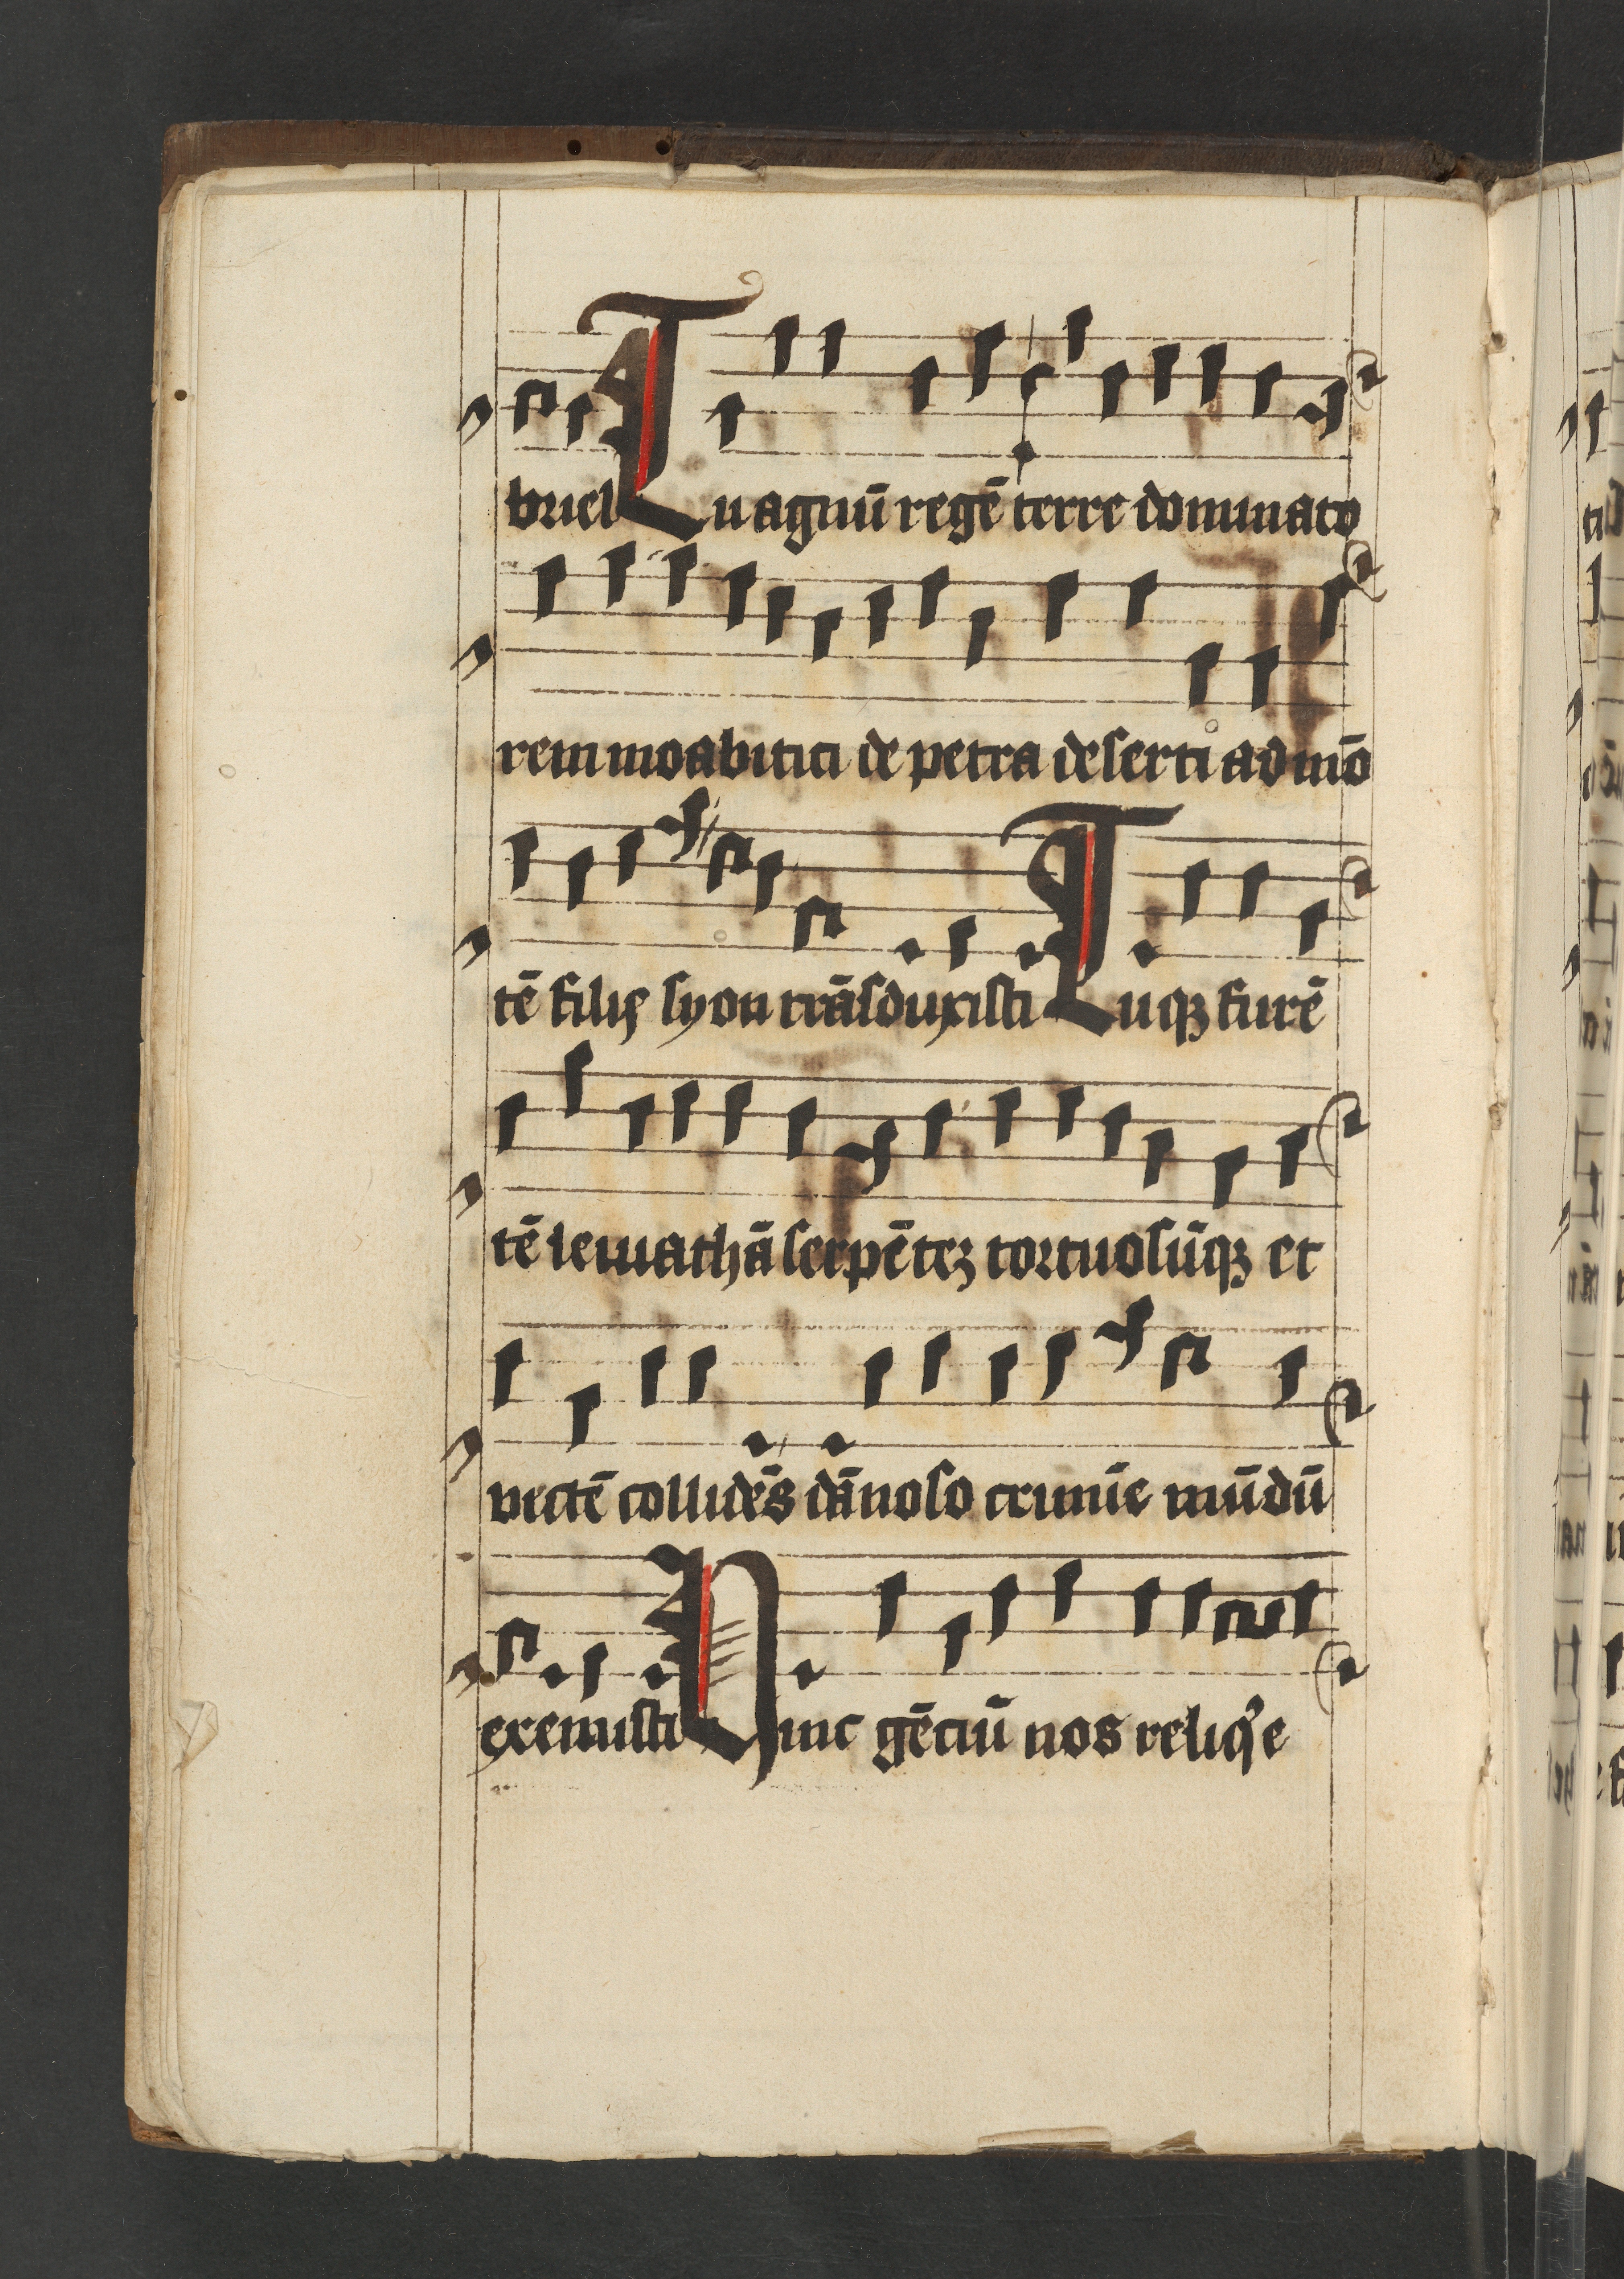 briel Tu agnū regē terre dominato
rem moabitici de petra deserti ad mō
tē filie syon trāsduxisti Tuqꝫ furē
tē leuiathā serpēteꝫ tortuosūqꝫ et
vectē collidēs dānoso crimīe mūdū
exemisti Hinc gēciū nos reliq̓e